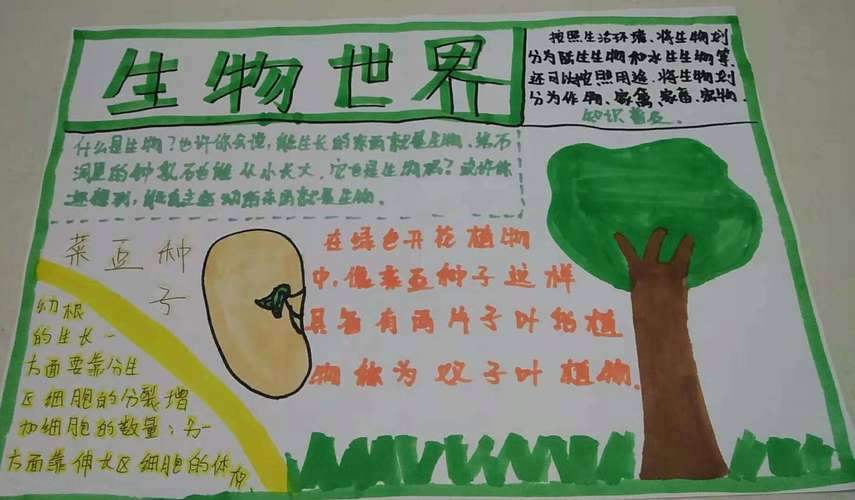 生物世界
按照生活环境、将生物划
分为陆生生物和水生生物等
还可以按照用途、将生物划
分为作物、家禽、家畜、宠物.
知识普及.
什么是生物?也许你会说,能生长的东西就是生物、溶石
洞里的钟乳石也能从小长大,它也是生物吗?或许你
还想到,能自主运动的东西就是生物.
菜豆种
子
在绿色开花植物
中,像菜豆种子这样
具备有两片子叶的植
物称为双子叶植物.
幼根
的生长一
方面要靠分生
区细胞的分裂增
加细胞的数量;另一
方面靠伸长区细胞的体积